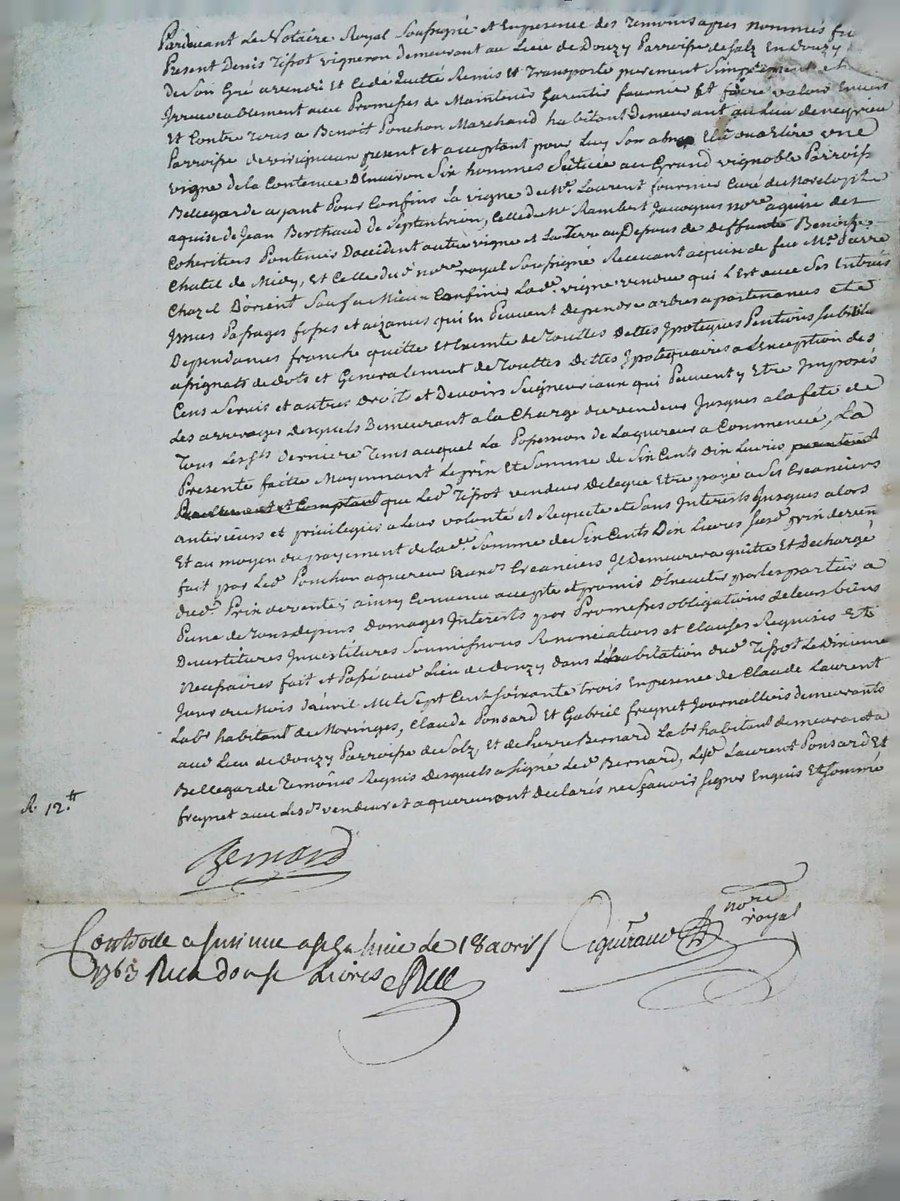 Pardevant Le Notaire Royal Soussigné et En presence des temoins apres nommés fu
Present Denis Tissot vigneron demeurant au Lieu de Donzy Parroisse de salz En donzy
De Son Gré a vendu et Cedé quitté Remis Et Transporté purement Simplement et
Irrevocablement avec Promesses de Maintenir Garentir fournir Et faire valoir Envers
Et Contre tous a Benoit Ponchon Marchand habitant Demeurant au Lieu de
Parroisse de present et acceptant pour Luy Son une
vigne de la Contenue D'Environ Six hommes Scituée au Grand vignoble Parroisse
Bellegarde ayant Pour Confins La vigne de Mre. Laurent fournier Curé de
aquise de Jean Berthaud de Septentrion, Celle de Mr. Rambert Jacquus nore. aquise des
Coheritiers Pontenis D'occident autre vigne et La Terre au Dessus de deffunte Benoite
Chatel de Midy, et Celle dud. nore. royal Soussigné Recevant aquise de feu Me. Pierre
Chazel D'orient Sauf a Mieux Confiner Lad. vigne vendue qui L'Est avec Ses Entrées
Issues Passages fosses et aizances qui En Peuvent dependre arbres apartenances et
Dependances franche quitte et Exemte de Touttes dettes Ipoteques Pentions
assignats de dots et Generalement de Touttes Dettes Ipotequaires a L'Exception des
Cens Servis et autres Droits et Devoirs Seigneuriaux qui Peuvent y Etre Imposés
Les arrerages desquels Demeurant a la Charge du vendeur Jusques a la fete de
Tous Les Sts. derniere Tems auquel La Possession de L'aquereur a Commencé, La
Presente faitte Moyennant Le prix Et Somme de Six Cents Dix Livres
et Comptant que Led. Tissot vendeur Delegue Etre payé a Ses Creanciers
anterieurs et privilegiés a leur volonté et Requete et Sans Interets Jusques alors
Et au moyen du payement de lad. Somme de Six Cents Dix Livres Susd. prix de
fait par Led. Ponchon aquereur Creanciers Il Demeurera quitte Et Dechargé
Dud. Prix de vente; ainsy Convenu accepté et promis D'Executer par les parties a
Peine de Tous depens Domages Interets par Promesses obligations de leurs biens
Devestitures Investitures Soumissions Renonciations et Clauses Requises Et
Necessaires fait et Passé aud. Lieu de donzy dans L'habitation dud. Tissot Le dixieme
Jour du Mois d'avril Mil Sept Cent Soixante trois En presence de Claude Laurent
Labr. habitant de Moringes, Claude Ponsard Et Gabriel freynet Journalliers demeurants
aud. Lieu de donzy Parroisse de Salz, Et de Pierre Bernard Labr. habitant demeurant a
Bellegarde Temoins Requis desquels a signé Led. Bernard, Lesd. Laurent Ponsard Et
freynet avec Lesd. vendeur et aquereur ont declarés ne Sçavoir Signer Enquis Et Sommé
R. 12tt
Bernard
nore
royal
Controllé le 18 avril
1763 Reçu Livres